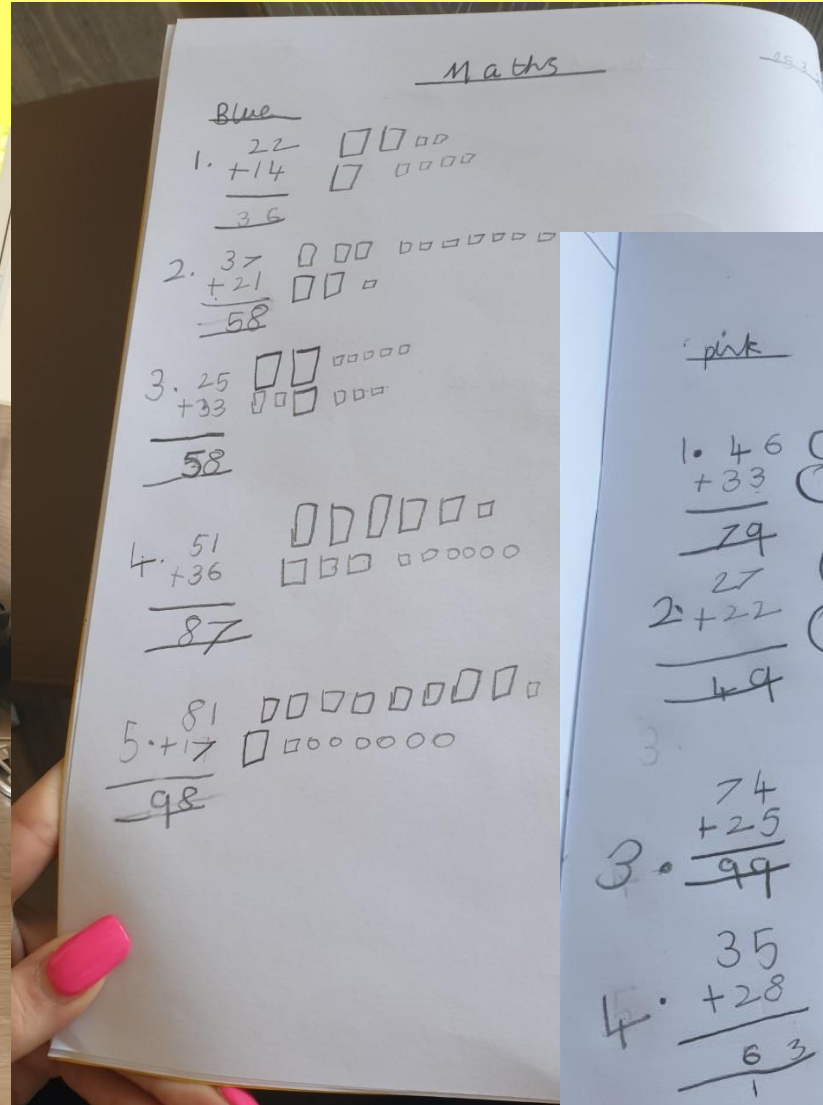 Maths
Blue
1. 22
+14
36
2. 37
+21
58
3. 25
+33
58
4. 51
+36
87
5. 81
+17
98
pink
1. 46
+33
79
2. 27
+22
49
3.
74
+25
3. 99
35
4. +28
63
1